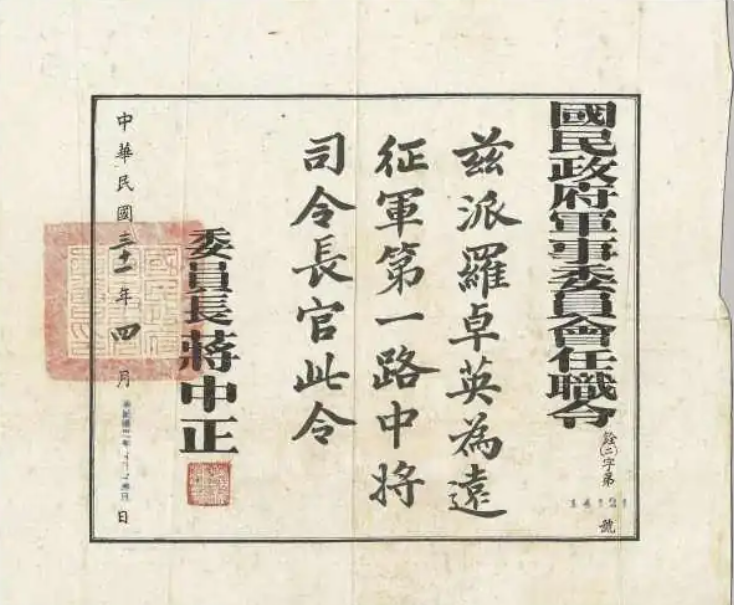 國民政府軍事委員會任職令
銓(二)字第14121號
茲派羅卓英為遠
征軍第一路中將
司令長官此令
委員長蔣中正
中華民國三十一年四月 日